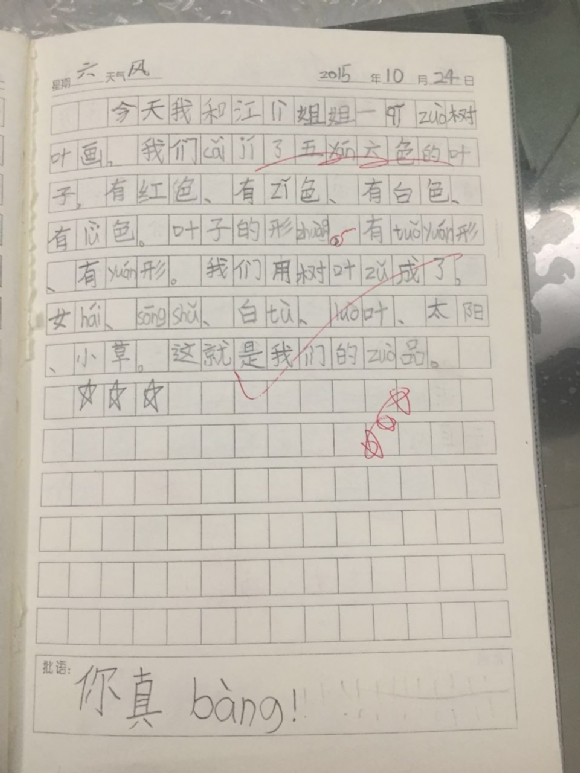 星期 六 天气 风 2015 年 10 月 24 日
今天我和江lì姐姐一qǐ zuò树
叶画。我们cǎi jí了五yán六色的叶
子,有红色、有zǐ色、有白色、
有lǜ色。叶子的形zhuàng有tuǒ yuán形
、有yuán形。我们用树叶zǔ成了
女hái、sōng shǔ、白tù、luò叶、太阳
、小草。这就是我们的zuò品。
☆☆☆
批语:
你真 bàng!